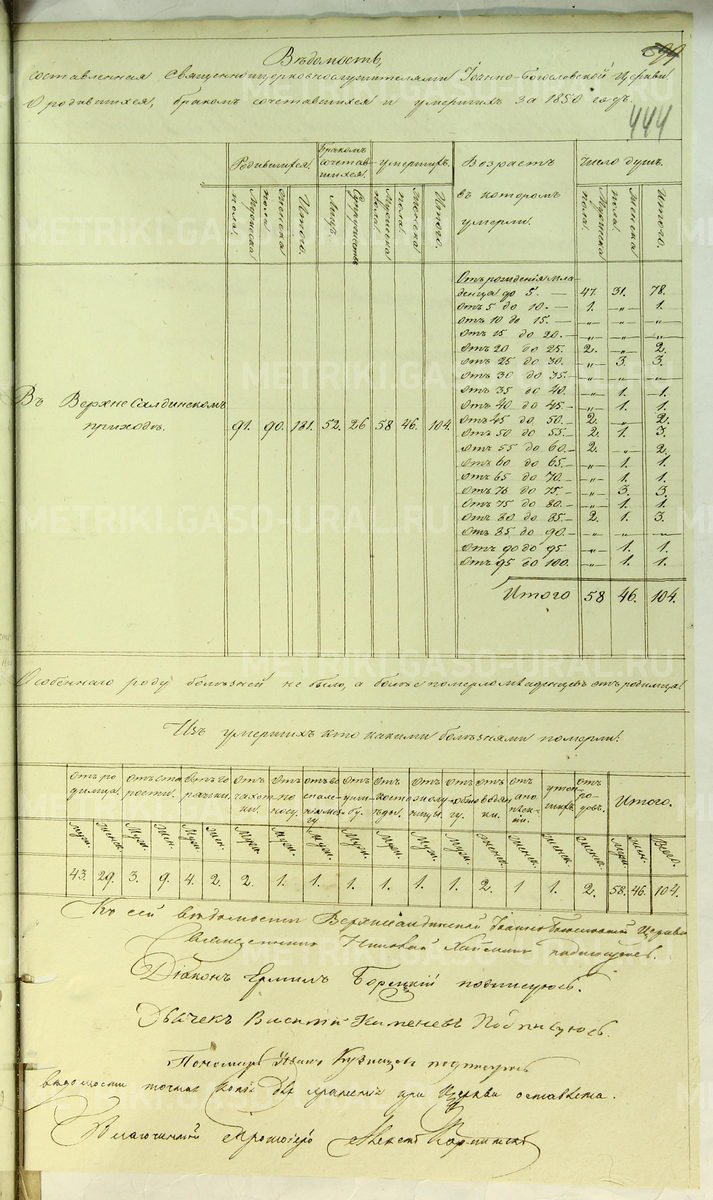 Вѣдомость,
составленная Священноцерковнослужителями Іоанно-Богословской Церкви
О родившихся, бракомъ сочетавшихся и умершихъ за 1850 годъ.
444
Родившихся. Бракомъ сочетавшихся. умершихъ. Возрастъ въ которомъ умерли. Число душъ.
Мужеска пола. Женска пола. Итого. Лицъ. Супружествъ Мужеска пола. Женска пола. Итого. Мужеска пола. Женска пола. Итого.
Въ Верхне Салдинскомъ приходѣ. 91. 90. 181. 52. 26 58 46. 104
Отъ рожденія мла-
денца до 5. — 47. 31. 78.
отъ 5 до 10 — 1. —„— 1.
отъ 10 до 15. — —„— —„— —
отъ 15 до 20. — —„— —„— —„—
отъ 20 до 25. 2. —„— 2.
отъ 25 до 30. — —„— 3. 3.
отъ 30 до 35. — —„— —„— —„—
отъ 35 до 40. —„— 1. 1.
отъ 40 до 45. — —„— 1. 1.
отъ 45 до 50. — 2. —„— 2.
отъ 50 до 55. — 2. 1. 3.
отъ 55 до 60. — 2. —„— 2.
отъ 60 до 65. — —„— 1. 1.
отъ 65 до 70. — —„— 1. 1.
отъ 70 до 75. — —„— 3. 3.
отъ 75 до 80. — —„— 1. 1.
отъ 80 до 85. — 2. 1. 3.
отъ 85 до 90. — —„— —„— —„—
отъ 90 до 95 —„— 1. 1.
отъ 95 до 100. —„— 1. 1.
Итого 58 46. 104.
Особеннаго роду болѣзней не было, а болѣе померло младенцевъ отъ родимца.
Изъ умершихъ кто какими болѣзнями померли:
отъ родимца. отъ старости. отъ горячки. отъ чахотки. отъ поносу. отъ воспаленія отъ отъ отъ отъ водянки. отъ апоплексіи. отъ родовъ. Итого.
Муж. Женск. Муж. Жен. Муж. Жен. Муж. Муж. Муж. Муж. Муж. Муж. Муж. Женск. Женск. Женск. Женск. Муж. Жен. Всего.
43. 29. 3. 9. 4. 2. 2. 1. 1. 1. 1. 1. 1. 2. 1 1. 2. 58. 46. 104.
Къ сей вѣдомости Верхнесалдинской Іоанно Богословской Церкви
Священникъ Николай подписуюсь.
Діаконъ Ермилъ Борецкій подписуюсь.
Дьячекъ Василій Каменевъ Подписуюсь.
Пономарь Иванъ Кузнецовъ подписуюсь
вѣдомости точная копія для храненія при Церкви оставлена.
Благочинный Протоіерей Алексій
METRIKI.GAZOURAL.RU